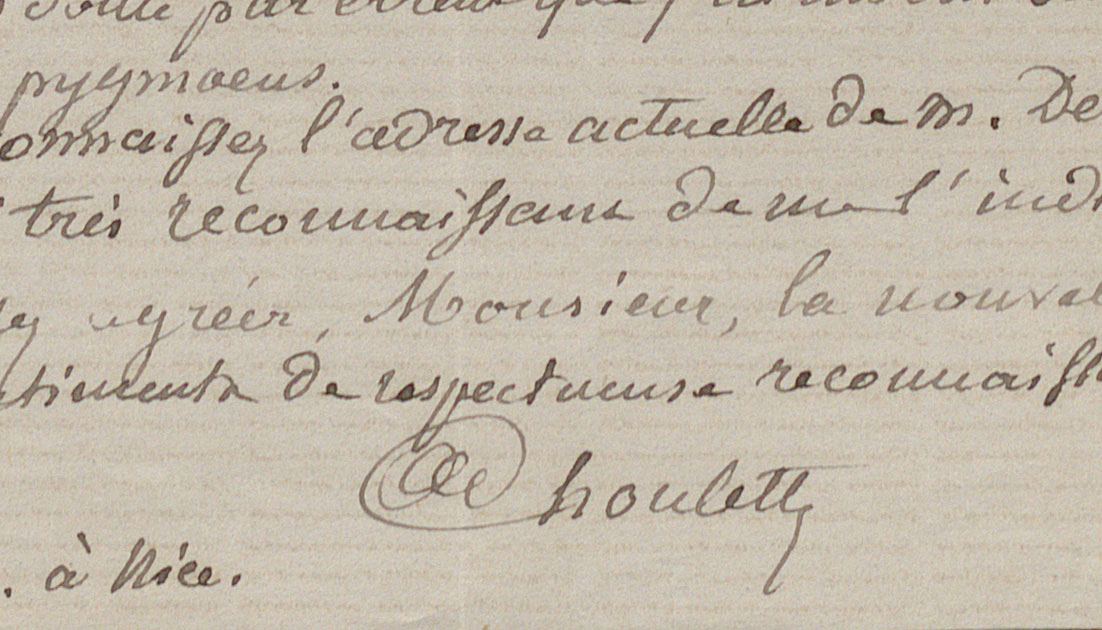 par erreur que
pygmoeus.
onnaissez l'adresse actuelle de M. De
très reconnaissant de me l'indi
ez agréer, Monsieur, la nouvel
timents de respectueuse reconnaiss
Choulette
. à Nice.